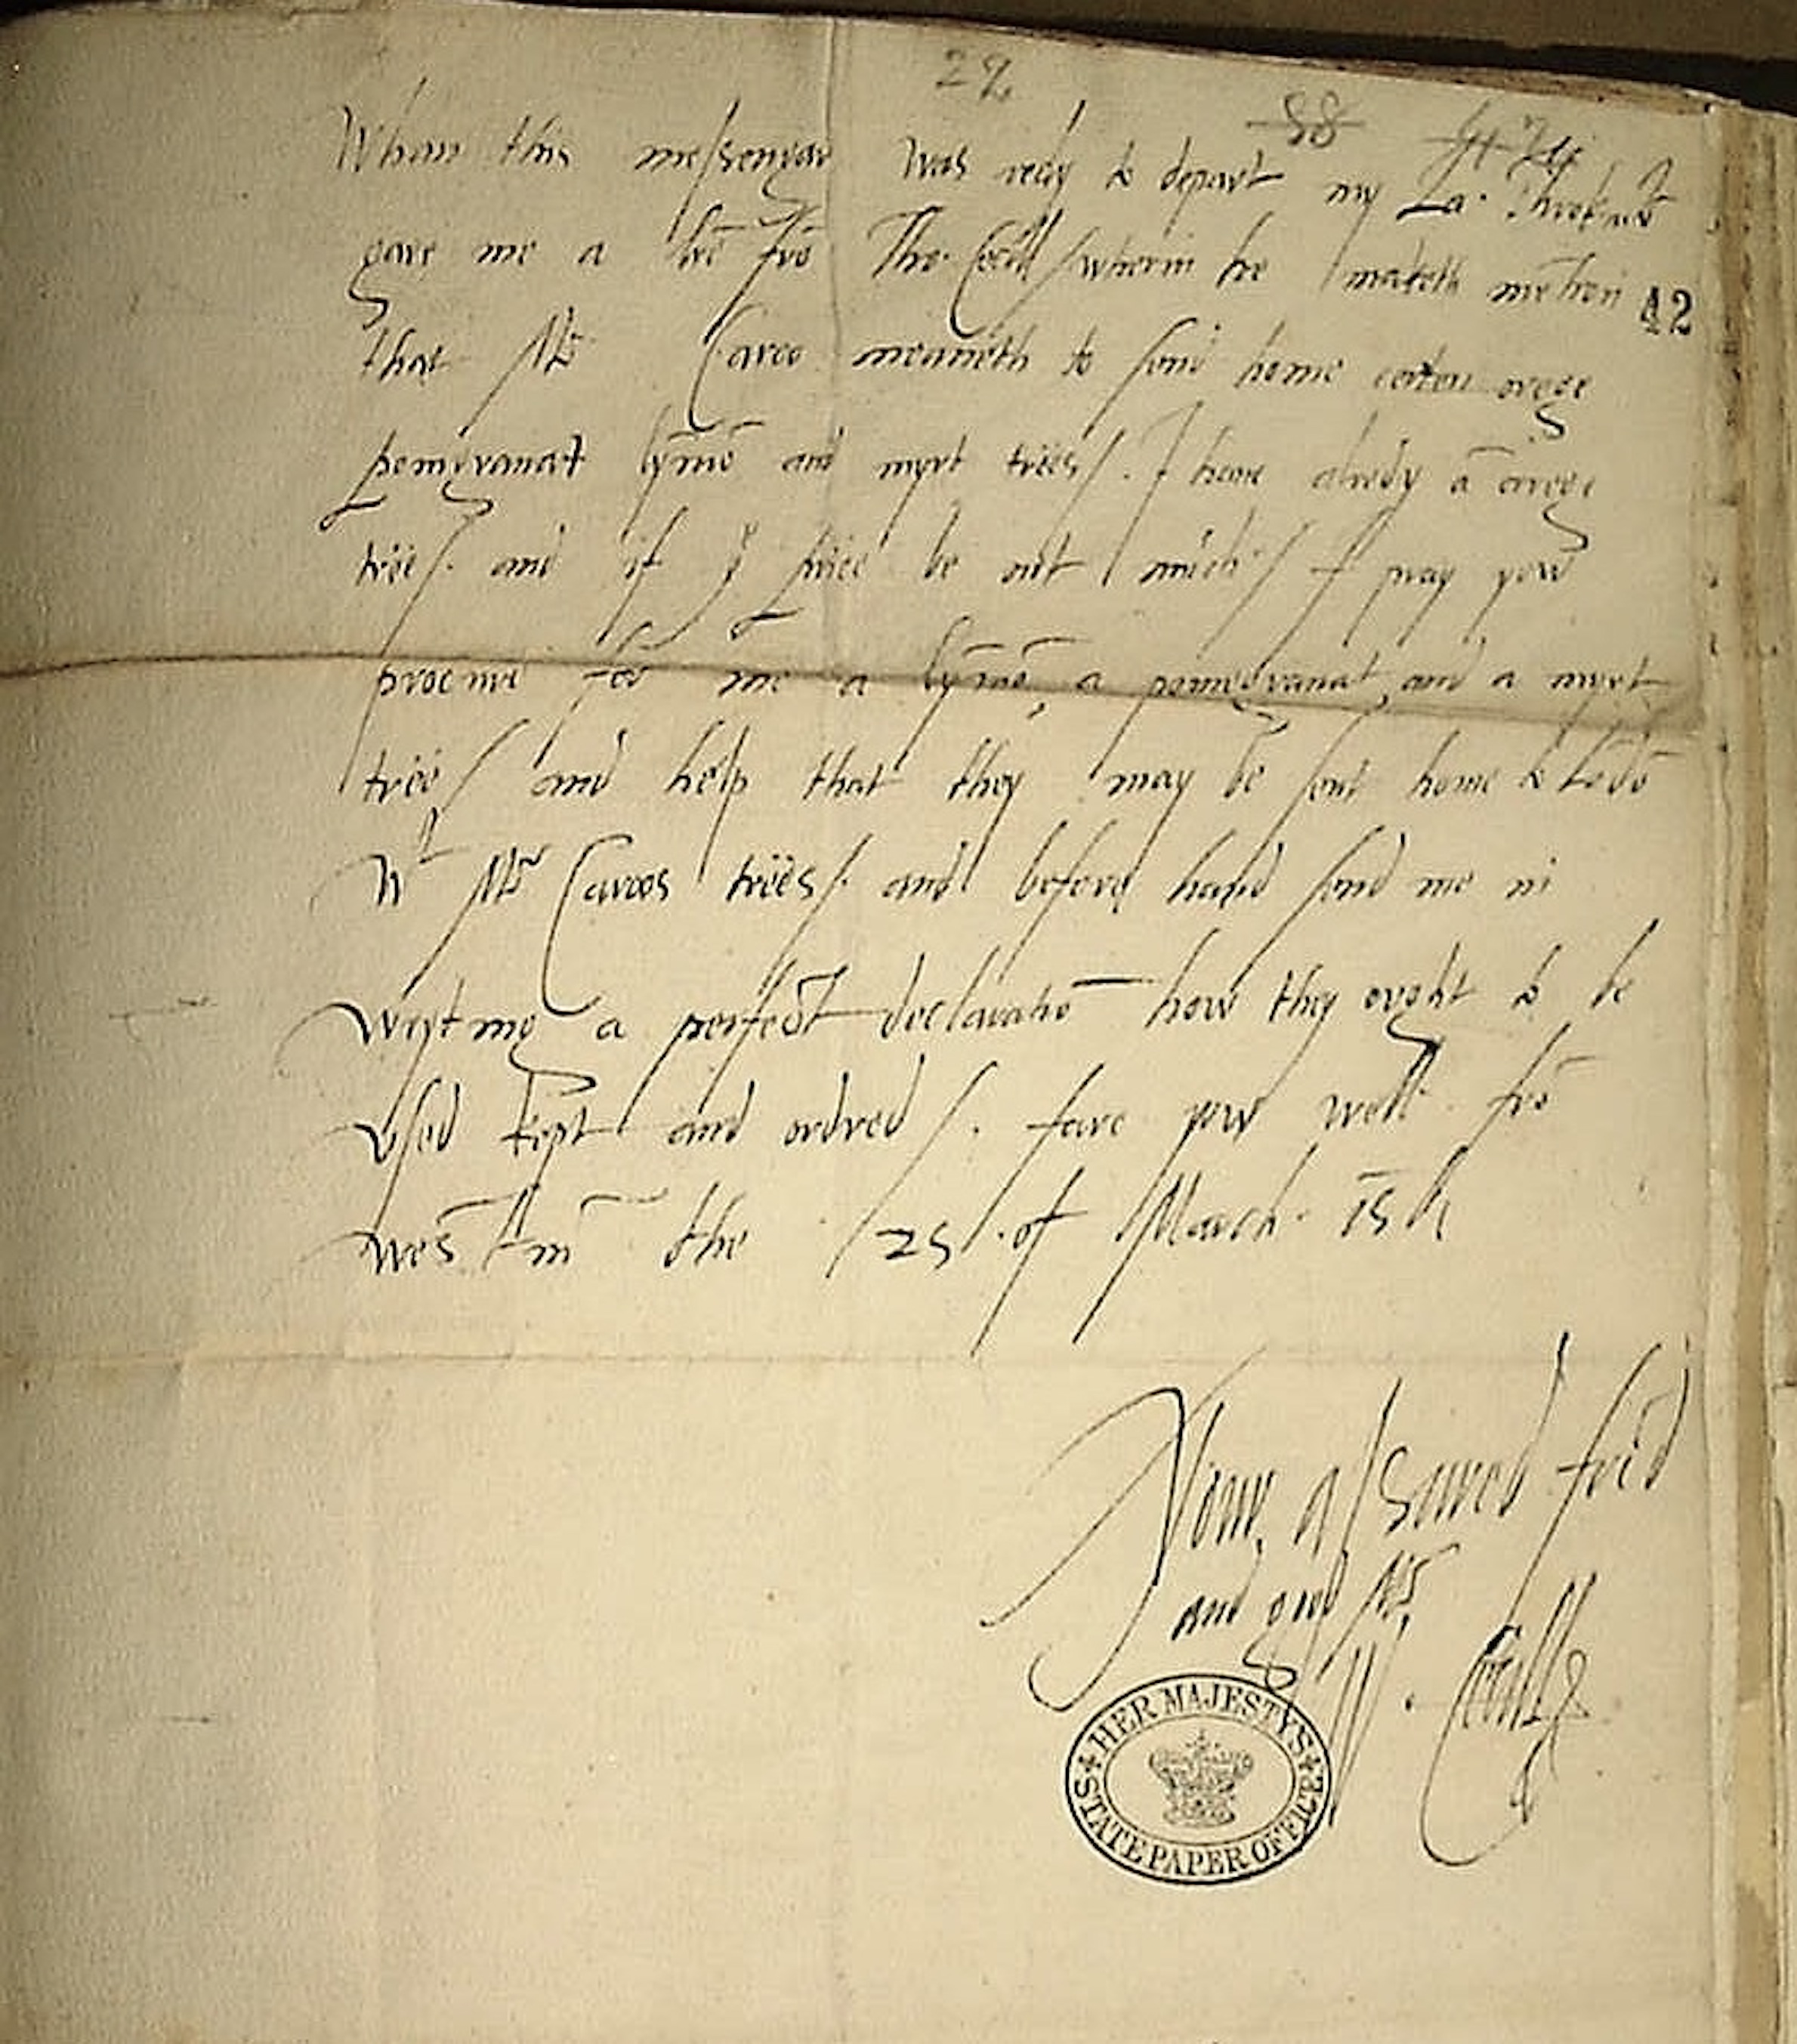 29
88
42
Whan this messengar was redy to depart my La. Throkm̄
gave me a lr̄e frō Tho. Cecill / wherin he maketh mētion
that Mr Caroo meaneth to send home certen orege
pomgranat lymō and myrt trees /. I have alredy ā orege
tree /. and if ye price be not much / I pray yow
procure for me a lymō, a pomgranat, and a myrt
tree / and help that they may be sent home to Lōdō
wt Mr Caroos trees /. and before hand send me in
wrytyng a perfect declaratiō how they ought to be
used kept and ordred /. fare yow well. frō
westm̄ the / 25 /. of March. 156
Your assured frēd
and good Mr
W. Cecill
HER MAJESTY'S
STATE PAPER OFFICE